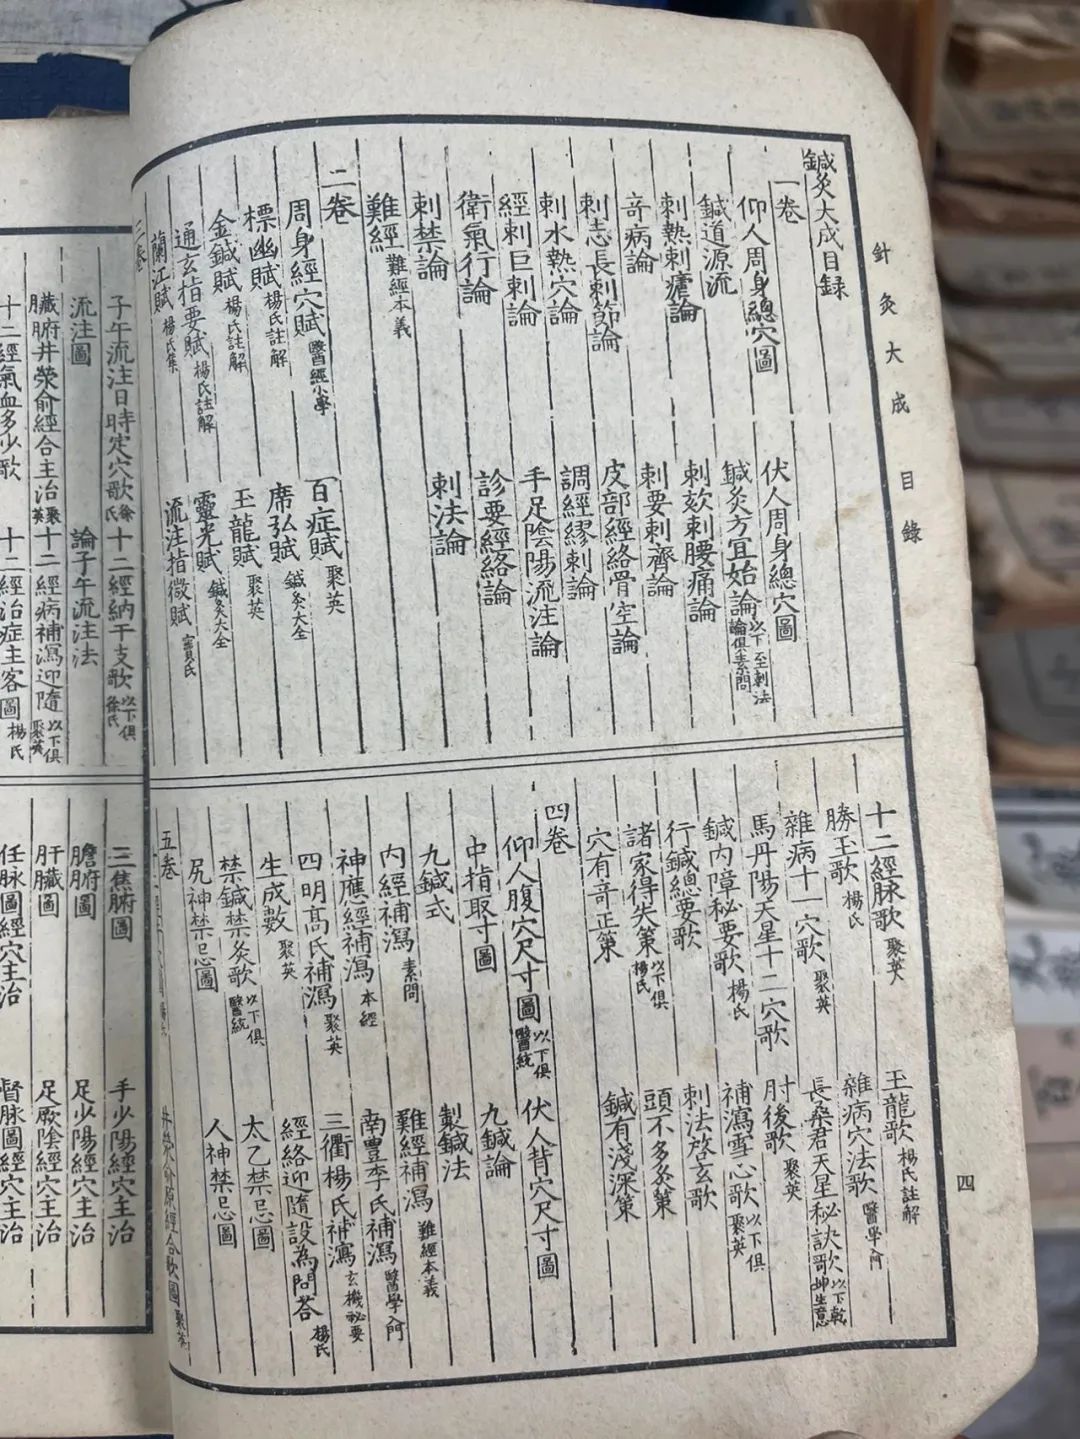 針灸大成 目錄
四
鍼灸大成目録
一卷
仰人周身總穴圖 伏人周身總穴圖
鍼道源流 鍼灸方宜始論 以下至刺法論俱素問
刺熱刺瘧論 刺欬刺腰痛論
竒病論 刺要刺齊論
刺志長刺節論 皮部經絡骨空論
刺水熱穴論 調經繆刺論
經刺巨刺論 手足陰陽流注論
衛氣行論 診要經絡論
刺禁論 刺法論
難經 難經本義
二卷
周身經穴賦 醫經小學 百症賦 聚英
標幽賦 楊氏註解 席弘賦 鍼灸大全
金鍼賦 楊氏註解 玉龍賦 聚英
通玄指要賦 楊氏註解 靈光賦 鍼灸大全
蘭江賦 楊氏集 流注指微賦 竇氏
三卷
十二經脉歌 聚英 玉龍歌 楊氏註解
勝玉歌 楊氏 雜病穴法歌 醫學入門
雜病十一穴歌 聚英 長桑君天星秘訣歌 以下乾坤生意
馬丹陽天星十二穴歌 肘後歌 聚英
鍼内障秘要歌 楊氏 補瀉雪心歌 以下俱聚英
行鍼總要歌 刺法啓玄歌
諸家得失策 以下俱楊氏 頭不多灸策
穴有竒正策 鍼有淺深策
四卷
仰人腹穴尺寸圖 以下俱醫統 伏人背穴尺寸圖
中指取寸圖
九鍼式 九鍼論
製鍼法
内經補瀉 素問 難經補瀉 難經本義
神應經補瀉 本經 南豊李氏補瀉 醫學入門
四明高氏補瀉 聚英 三衢楊氏補瀉 玄機祕要
生成數 聚英 經絡迎隨設為問荅 楊氏
禁鍼禁灸歌 以下俱醫統 太乙禁忌圖
尻神禁忌圖 人神禁忌圖
五卷
井滎俞原經合歌圖 聚英
子午流注日時定穴歌 徐氏 十二經納干支歌 以下俱徐氏
流注圖 論子午流注法
臟腑井滎俞經合主治 聚英 十二經病補瀉迎隨 以下俱聚英
十二經氣血多少歌 十二經治症主客圖 楊氏
三焦腑圖 手少陽經穴主治
膽腑圖 足少陽經穴主治
肝臟圖 足厥陰經穴主治
任脉圖經穴主治 督脉圖經穴主治